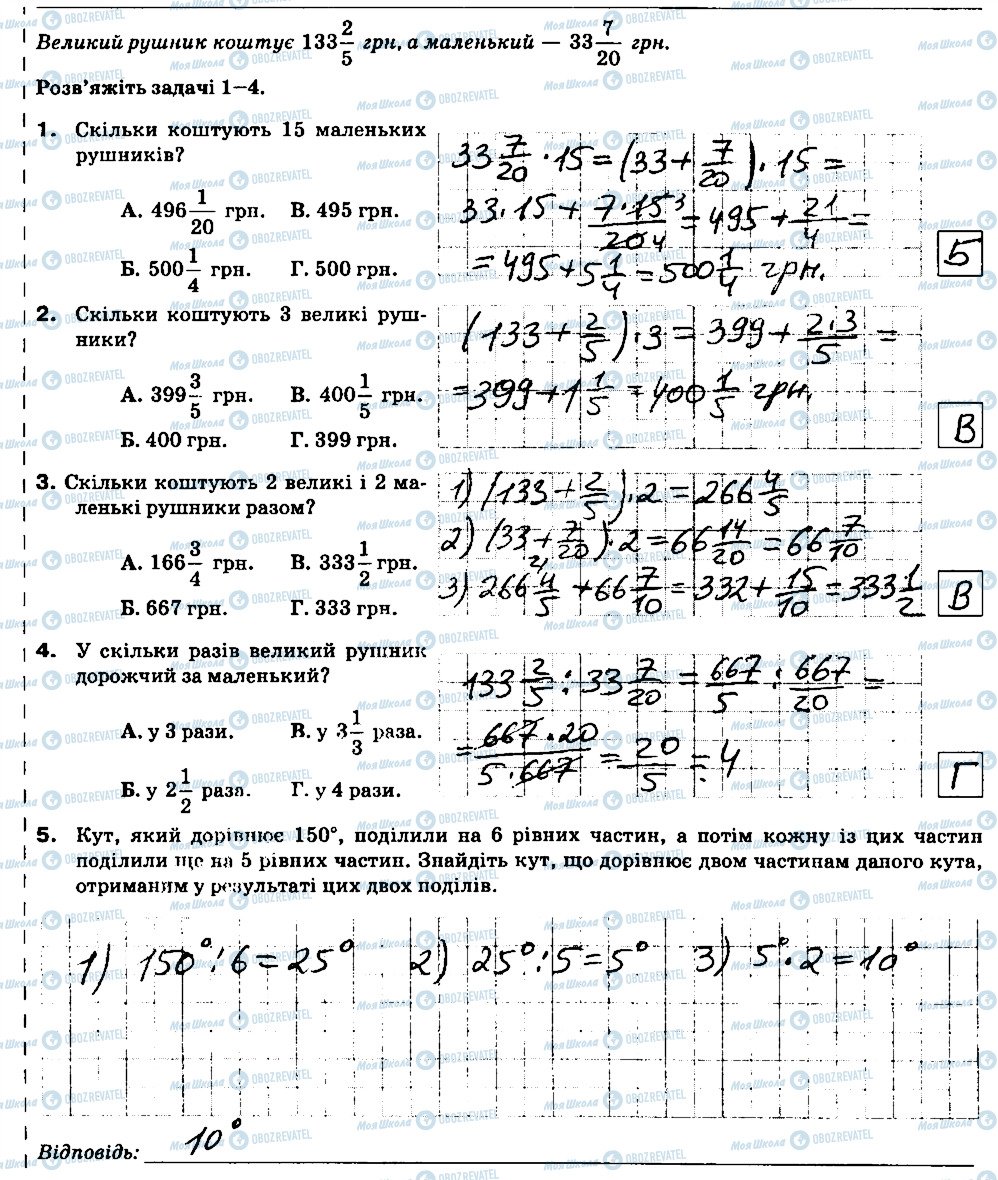 Великий рушник коштує 133 2/5 грн, а маленький — 33 7/20 грн.
Розв'яжіть задачі 1–4.
1. Скільки коштують 15 маленьких
рушників?
А. 496 1/20 грн. В. 495 грн.
Б. 500 1/4 грн. Г. 500 грн.
33 7/20 · 15 = (33 + 7/20) · 15 =
33 · 15 + 7 · 15 3/20 4 = 495 + 21/4 =
= 495 + 5 1/4 = 500 1/4 грн.
Б
2. Скільки коштують 3 великі руш-
ники?
А. 399 3/5 грн. В. 400 1/5 грн.
Б. 400 грн. Г. 399 грн.
(133 + 2/5) · 3 = 399 + 2·3/5 =
= 399 + 1 1/5 = 400 1/5 грн.
В
3. Скільки коштують 2 великі і 2 ма-
ленькі рушники разом?
А. 166 3/4 грн. В. 333 1/2 грн.
Б. 667 грн. Г. 333 грн.
1) (133 + 2/5) · 2 = 266 4/5
2) (33 + 7/20) · 2 = 66 14/20 = 66 7/10
3) 266 4/5 + 66 7/10 = 332 + 15/10 = 333 1/2
В
4. У скільки разів великий рушник
дорожчий за маленький?
А. у 3 рази. В. у 3 1/3 раза.
Б. у 2 1/2 раза. Г. у 4 рази.
133 2/5 : 33 7/20 = 667/5 : 667/20 =
= 667 · 20/5 · 667 = 20/5 = 4
Г
5. Кут, який дорівнює 150°, поділили на 6 рівних частин, а потім кожну із цих частин
поділили ще на 5 рівних частин. Знайдіть кут, що дорівнює двом частинам даного кута,
отриманим у результаті цих двох поділів.
1) 150° : 6 = 25° 2) 25° : 5 = 5° 3) 5° · 2 = 10°
Відповідь: 10°
МояШкола OBOZREVATEL